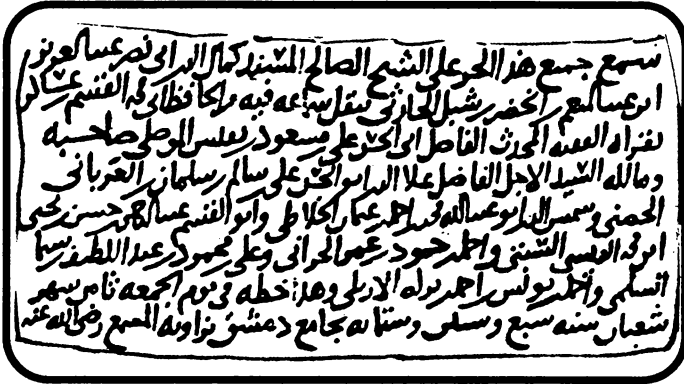 سمع جميع هذا الجزء على الشيخ الصالح المسند كمال الدين ابي نصر عبد العزيز
ابن عبد المنعم بن الخضر بن شبل الحارثي بنقل سماعه فيه من الحافظ ابي القسم
بقراه الفقيه المحدث الفاضل ابي الحسن علي بن مسعود بن نفيس الموصلي صاحبه
ومالكه السيد الاجل الفاضل علا الدين ابو الحسن علي بن سالم بن سلمان العرباني
الحصني وشمس الدين ابو عبد الله محمد بن احمد بن عثمان الخلاطي وابو القسم عبد الرحمن بن حسن بن يحيى
السبتي واحمد بن حمود بن عمر الحراني وعلي بن محمود بن عبد اللطيف بن سيما
السلمي واحمد بن يونس بن احمد بن بركه الاربلي وهذا خطه في يوم الجمعه ثامن شهر
شعبان سنه سبع وستين وستمايه بجامع دمشق بزاويه السميع رضي الله عنه